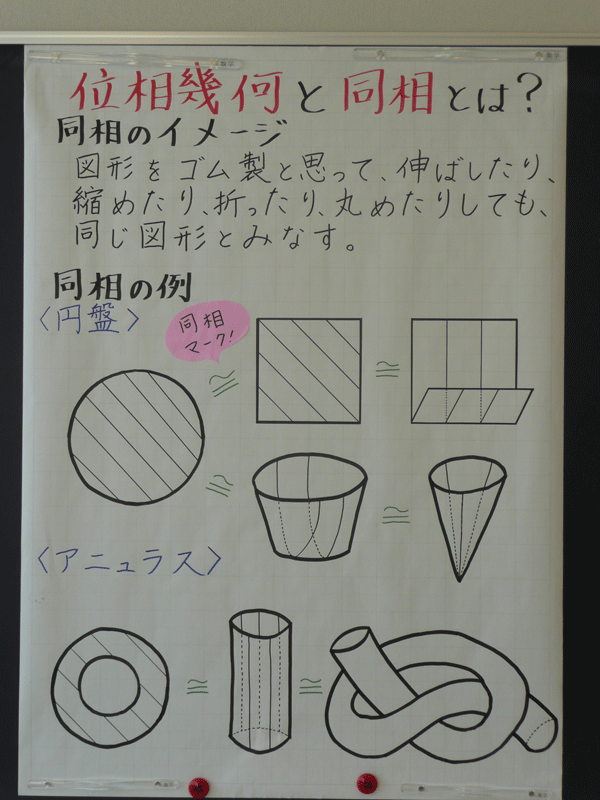 位相幾何と同相とは?
同相のイメージ
図形をゴム製と思って、伸ばしたり、
縮めたり、折ったり、丸めたりしても、
同じ図形とみなす。
同相の例
〈円盤〉
同相
マーク!
≅
≅
≅
≅
〈アニュラス〉
≅
≅